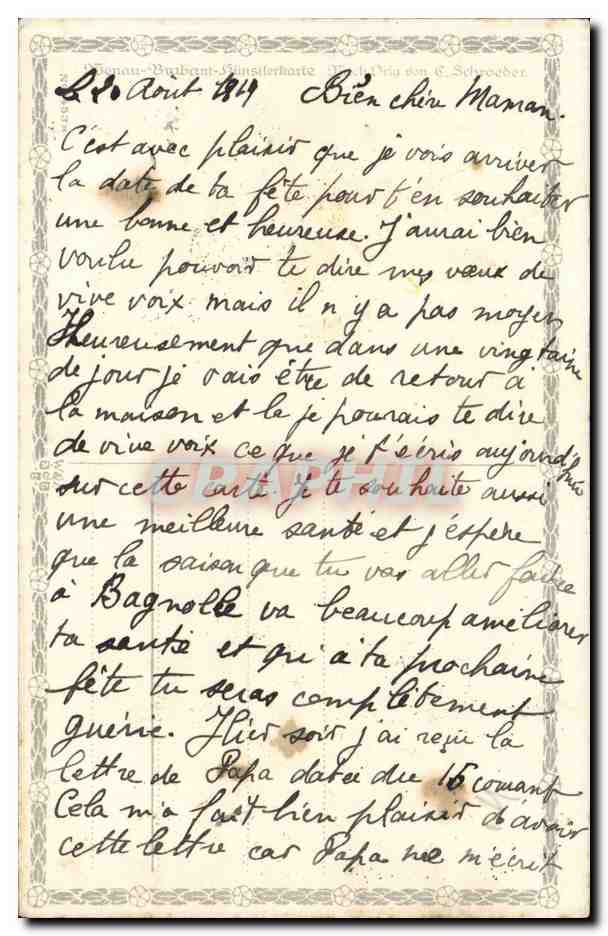 Donau-Brabant-Künstlerkarte Nach Orig von E. Schroeder.
Le 20 Août 1919 Bien chère Maman.
C'est avec plaisir que je vois arriver
la date de ta fête pour t'en souhaiter
une bonne et heureuse. J'aurai bien
voulu pouvoir te dire mes vœux de
vive voix mais il n'y a pas moyen
Heureusement que dans une vingtaine
de jour je vais être de retour à
la maison et la je pourais te dire
de vive voix ce que je t'écris aujourd'hui
sur cette carte. Je te souhaite aussi
une meilleure santé et j'espère
que la saison que tu vas aller faire
à Bagnolle va beaucoup améliorer
ta santé et qu'à ta prochaine
fête tu seras complètement
guérie. Hier soir j'ai reçu la
lettre de Papa datée du 15 courant
Cela m'a fait bien plaisir d'avoir
cette lettre car Papa ne m'écrit